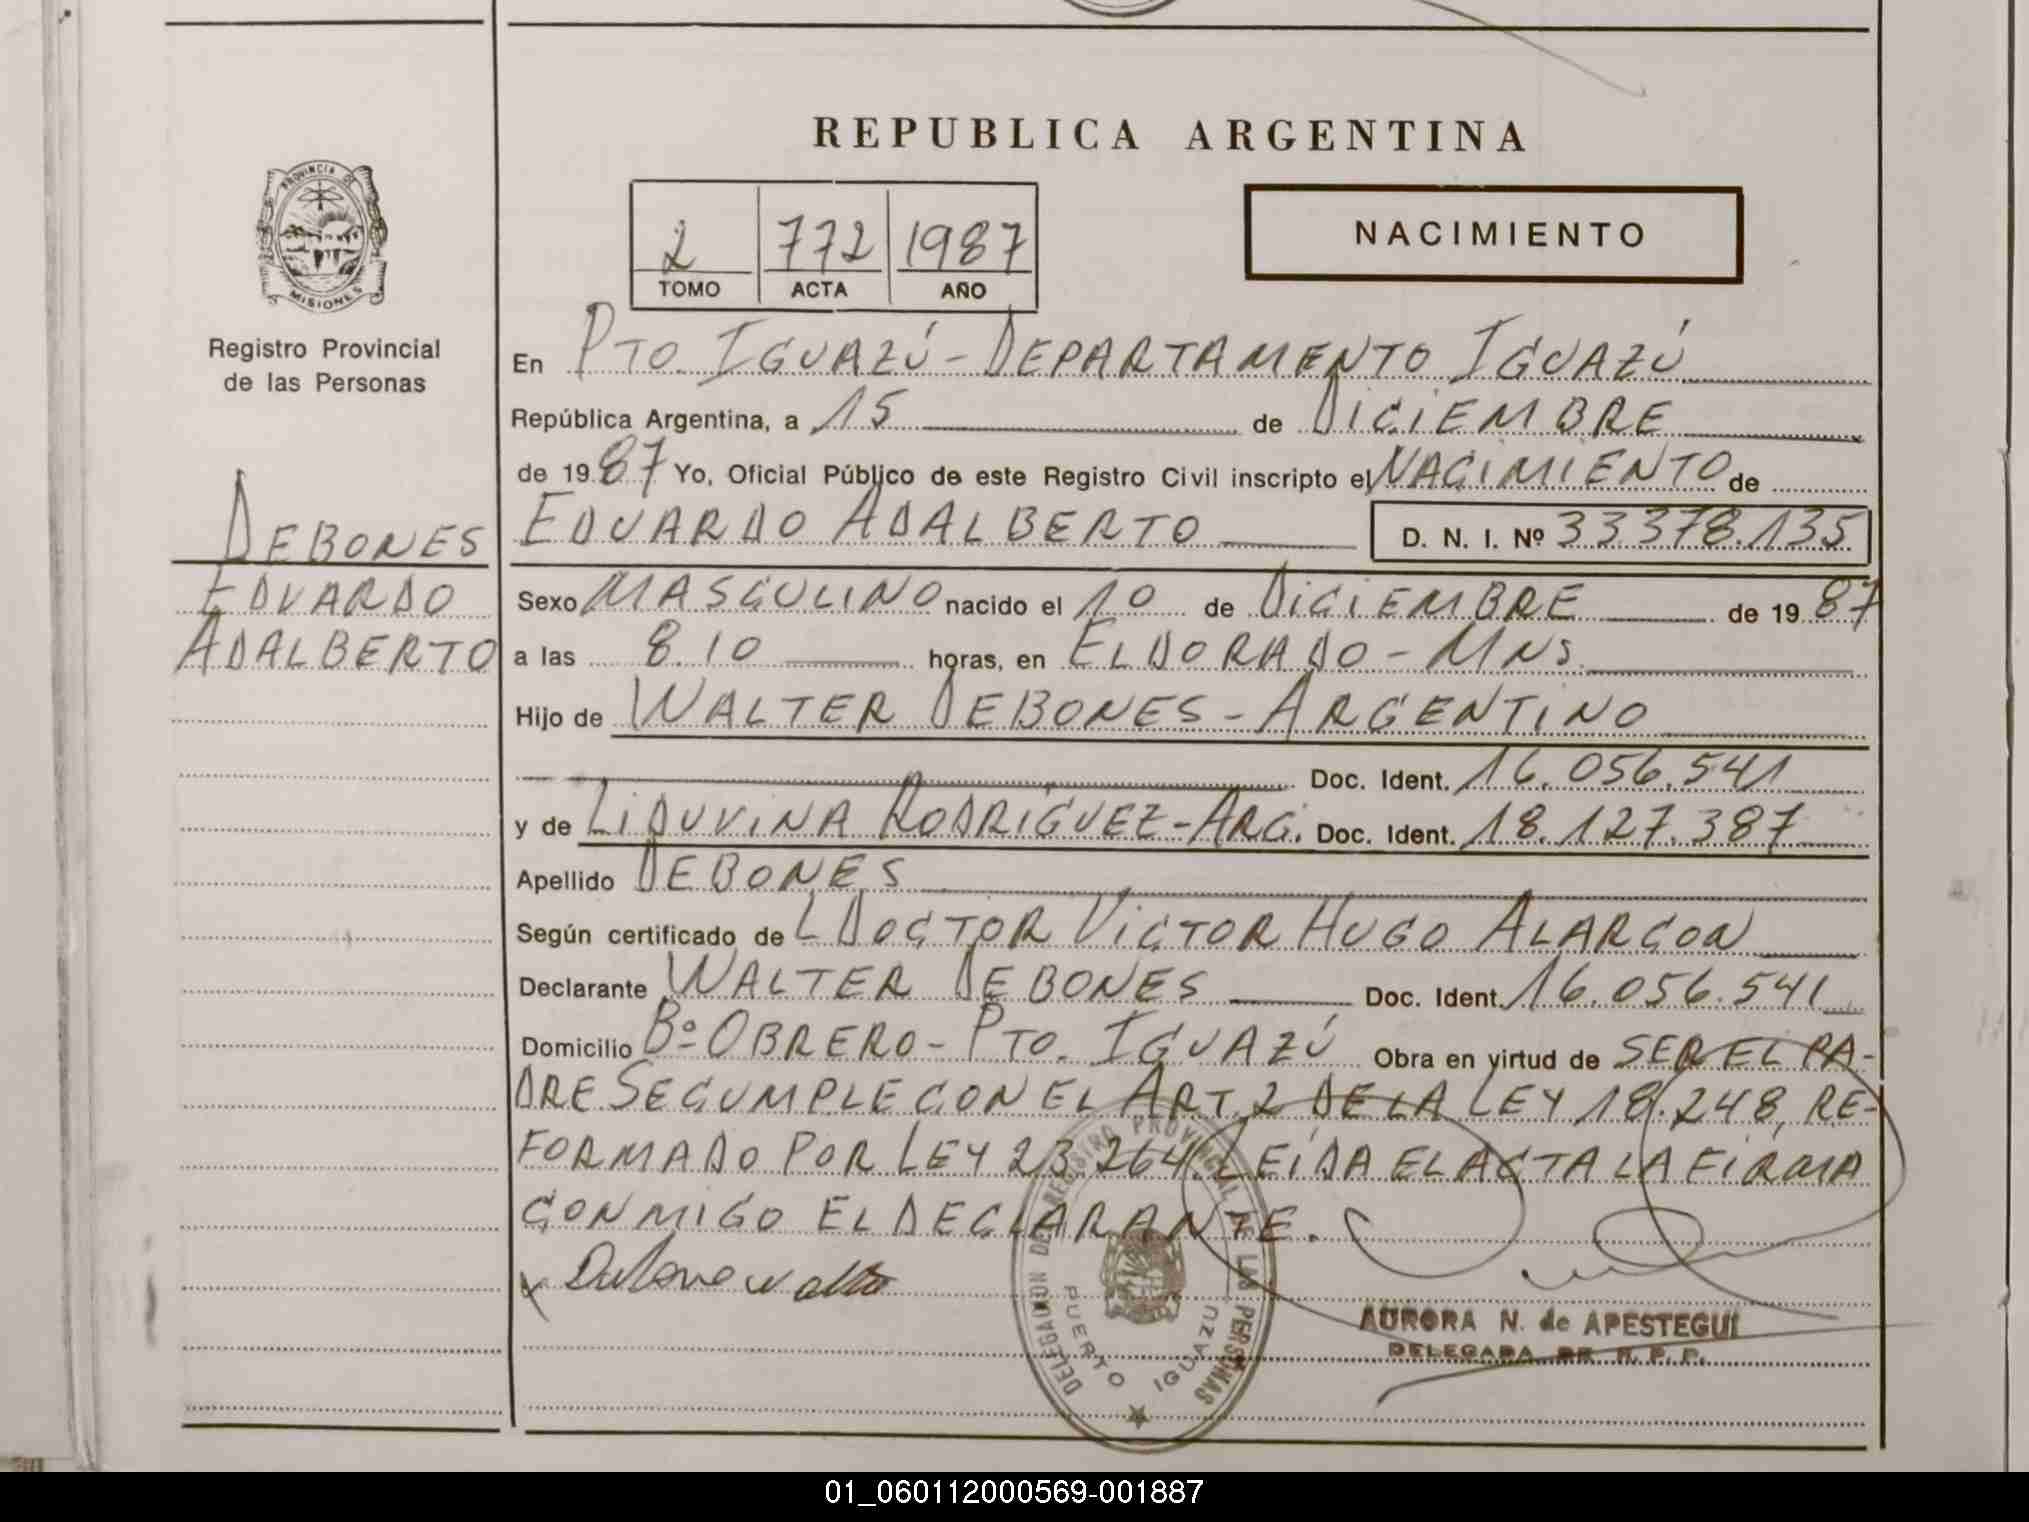 REPUBLICA ARGENTINA
PROVINCIA DE
MISIONES
Registro Provincial
de las Personas
DEBONES
EDUARDO
ADALBERTO
2 772 1987
TOMO ACTA AÑO
NACIMIENTO
En PTO. IGUAZÚ - DEPARTAMENTO IGUAZÚ
República Argentina, a 15 de DICIEMBRE
de 1987 Yo, Oficial Público de este Registro Civil inscripto el NACIMIENTO de
EDUARDO ADALBERTO D. N. I. Nº 33378.135
Sexo MASCULINO nacido el 10 de DICIEMBRE de 1987
a las 8.10 horas, en ELDORADO - MNS.
Hijo de WALTER DEBONES - ARGENTINO
Doc. Ident. 16.056.541
y de LIDUVINA RODRÍGUEZ - ARG. Doc. Ident. 18.127.387
Apellido DEBONES
Según certificado de L DOCTOR VICTOR HUGO ALARCON
Declarante WALTER DEBONES Doc. Ident. 16.056.541
Domicilio Bº OBRERO - PTO. IGUAZÚ Obra en virtud de SER EL PA-
DRE SE CUMPLE CON EL ART. 2 DE LA LEY 18.248, RE-
FORMADO POR LEY 23.264. LEÍDA EL ACTA LA FIRMA
CONMIGO EL DECLARANTE.
DELEGACION DEL REGISTRO PROVINCIAL DE LAS PERSONAS
PUERTO IGUAZU
AURORA N. de APESTEGUI
DELEGADA DE R. P. P.
01_060112000569-001887